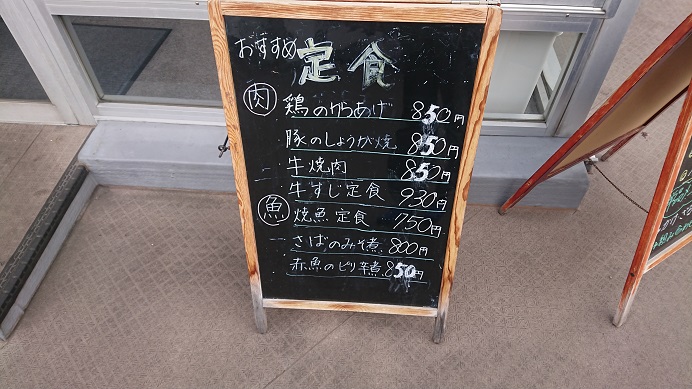 おすすめ 定食
肉 鶏のからあげ 850円
豚のしょうが焼 850円
牛焼肉 850円
牛すじ定食 930円
魚 焼魚定食 750円
さばのみそ煮 800円
赤魚のピリ辛煮 850円